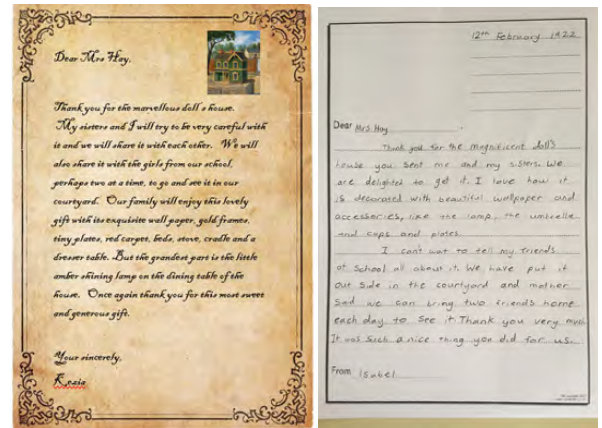 Dear Mrs Hay,
Thank you for the marvellous doll's house.
My sisters and I will try to be very careful with
it and we will share it with each other. We will
also share it with the girls from our school,
perhaps two at a time, to go and see it in our
courtyard. Our family will enjoy this lovely
gift with its exquisite wall paper, gold frames,
tiny plates, red carpet, beds, stove, cradle and a
dresser table. But the grandest part is the little
amber shining lamp on the dining table of the
house. Once again thank you for this most sweet
and generous gift.
Your sincerely,
Kezia
12th February 1922
Dear Mrs Hay
Thank you for the magnificent doll's
house you sent me and my sisters. We
are delighted to get it. I love how it
is decorated with beautiful wallpaper and
accessories, like the lamp, the umbrella
and cups and plates
I can't wat to tell my friends
at School all about it. We have put it
out side in the courtyard and mother
sad we can bring two friends home
each day to see it. Thank you very much
It was such a nice thing you did for us.
From Isabel